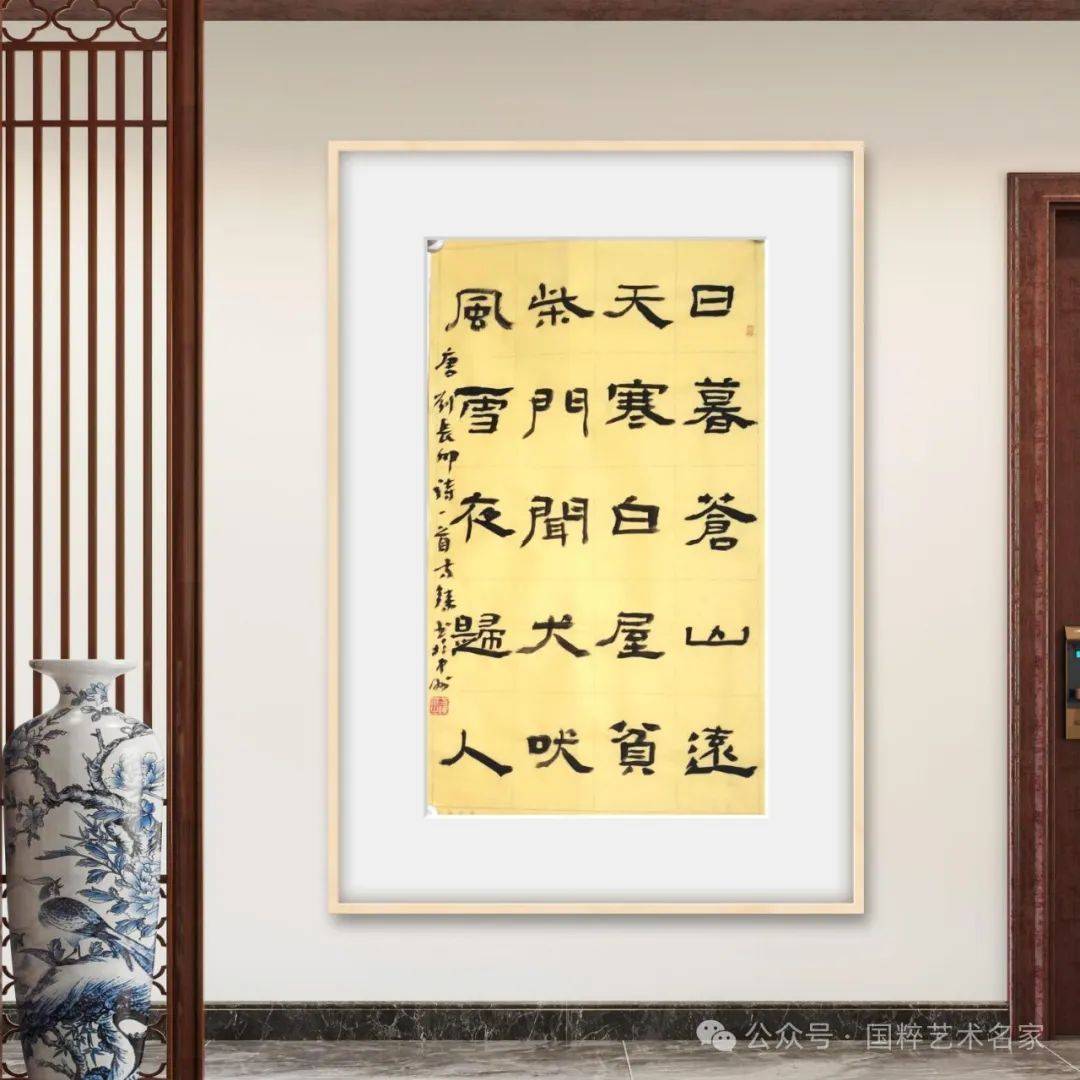 日暮蒼山遠
天寒白屋貧
柴門聞犬吠
風雪夜歸人
唐刘長卿詩一首 書於中州
公众号 · 国粹艺术名家